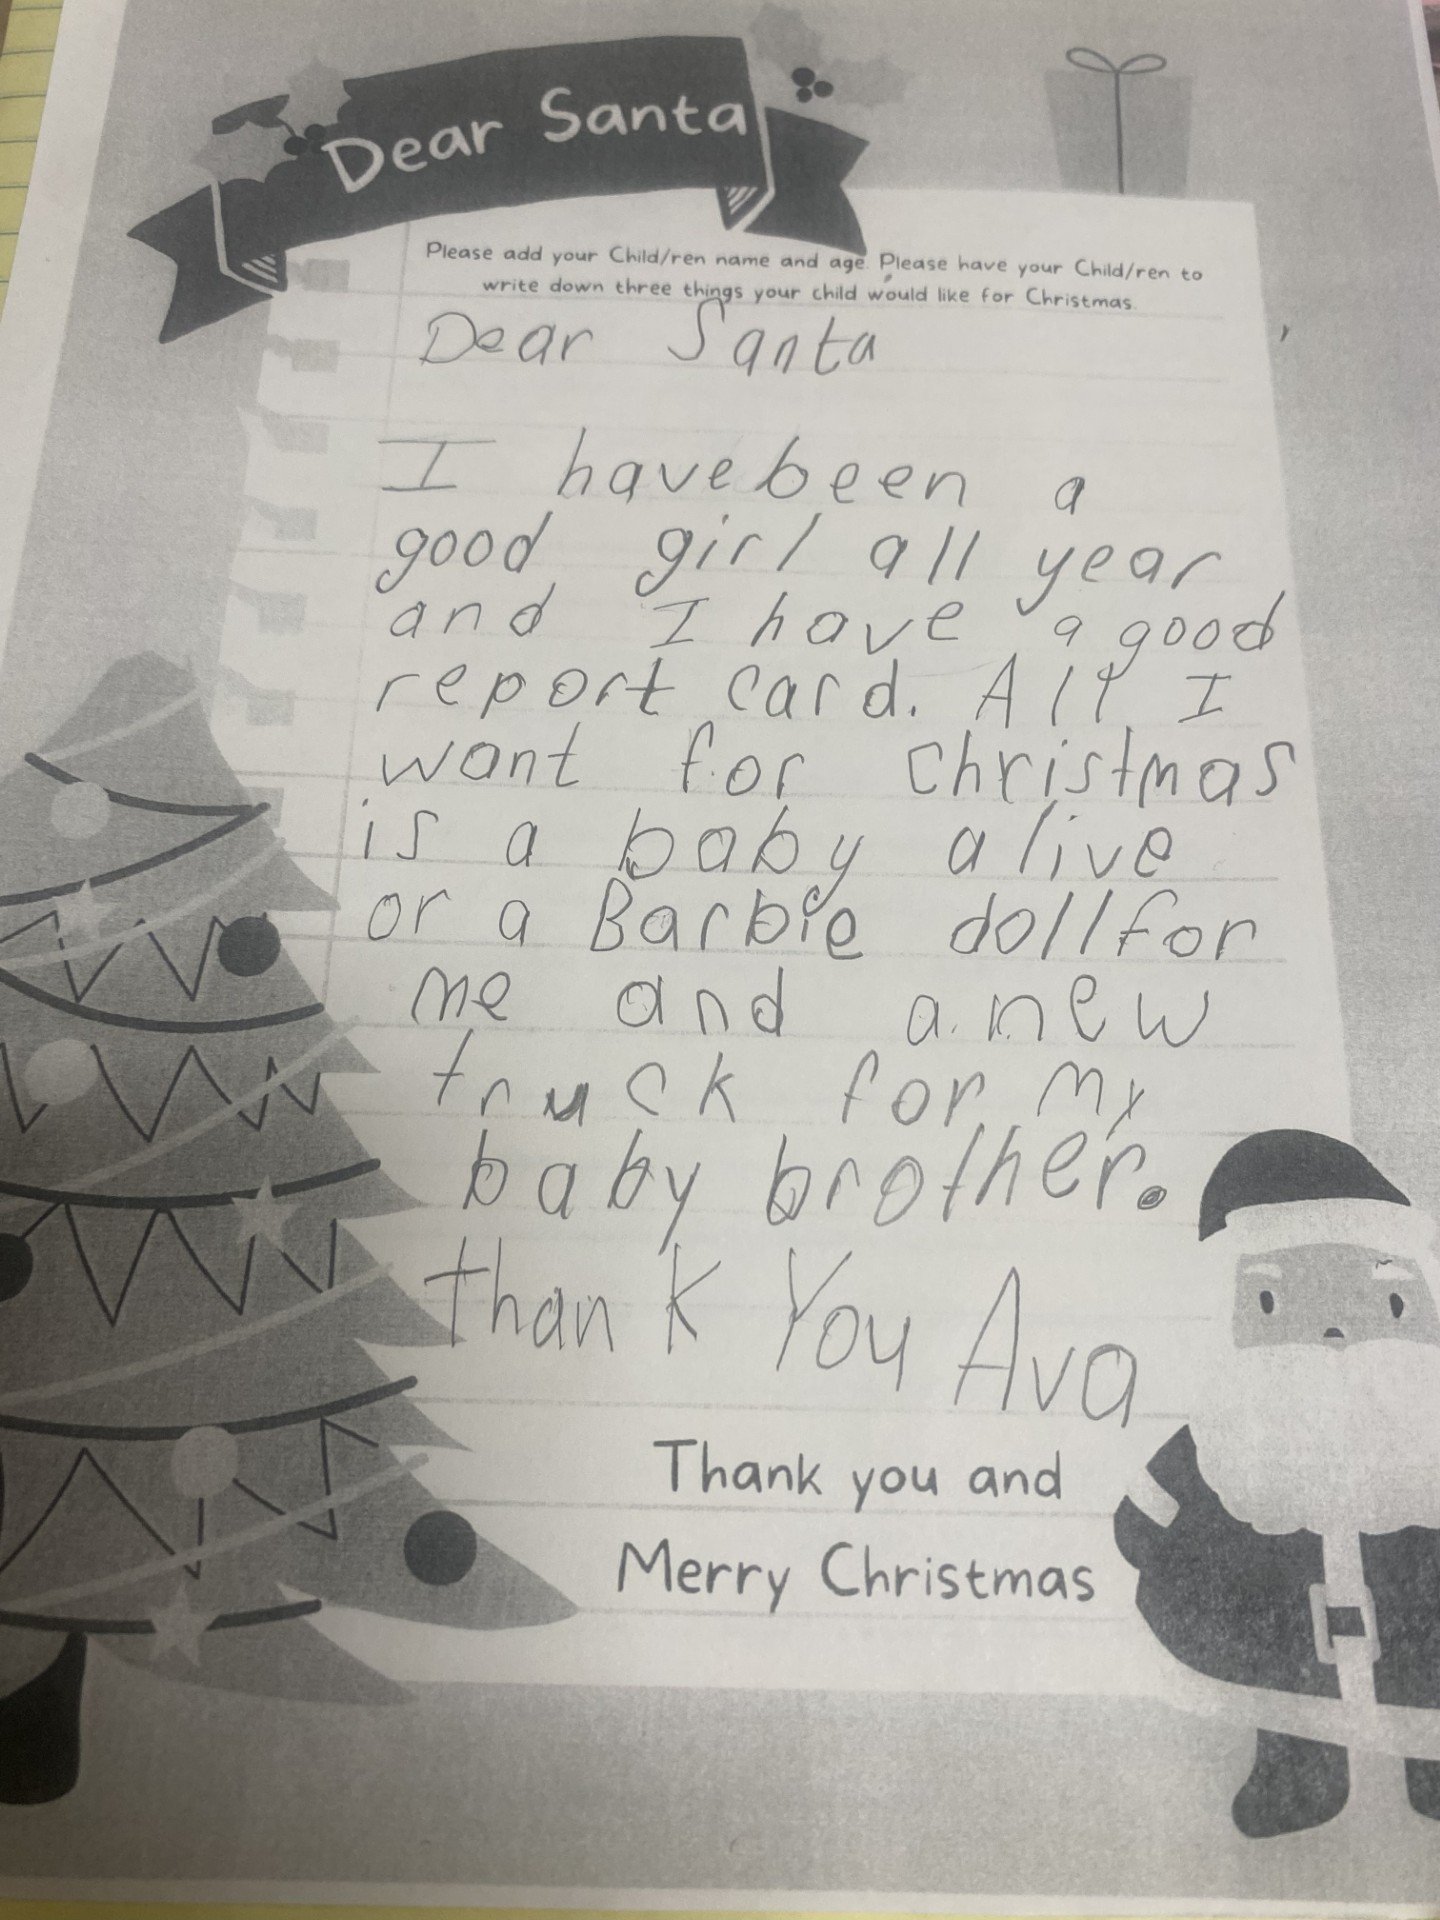 Dear Santa
Please add your Child/ren name and age. Please have your Child/ren to
write down three things your child would like for Christmas.
Dear Santa
I have been a
good girl all year
and I have a good
report card. All I
want for christmas
is a baby alive
or a Barbie doll for
me and a new
truck for my
baby brother.
thank You Ava
Thank you and
Merry Christmas